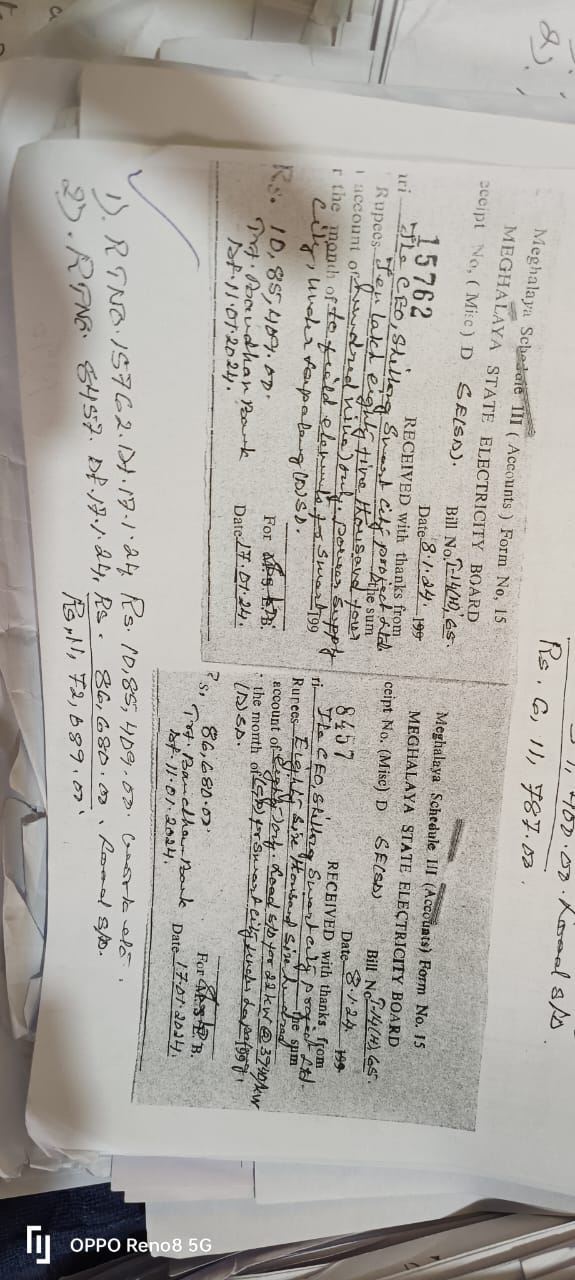 1,400.00. Load S/D.
Rs. 6,11,787.00.
Meghalaya Schedule III (Accounts) Form No. 15
MEGHALAYA STATE ELECTRICITY BOARD
eceipt No. (Misc) D SE(SD). Bill No.
15762 Date 8.1.24. 199
RECEIVED with thanks from
The CEO, Shillong Smart City project Ltd
Rupees Ten lakh eighty five thousand four the sum
account of hundred nine) only. power supply
r the month of to field elements for smart 199
City, under (D)SD.
Rs. 10,85,409.00. For M.S.E.B.
Trf. Bandhan Bank
Dt. 11.01.2024. Date 17.01.24.
Meghalaya Schedule III (Accounts) Form No. 15
MEGHALAYA STATE ELECTRICITY BOARD
ceipt No. (Misc) D SE(SD) Bill No
8457 Date 8.1.24. 199
RECEIVED with thanks from
The CEO, Shillong Smart City project Ltd.
Rupees Eighty six thousand six hundred the sum
account of eighty) only. Load S/D for 22 KW @ 3940/KW
the month of for smart city under 199
(D)SD.
86,680.00 For M.S.E.B.
Trf. Bandhan Bank
Dt. 11.01.2024. Date 17.01.2024.
1). RTNO. 15762. Dt. 17.1.24, Rs. 10,85,409.00.
2). RTNO. 8457. Dt. 17.1.24, Rs. 86,680.00. Load S/D.
Rs. 11,72,089.00.
OPPO Reno8 5G